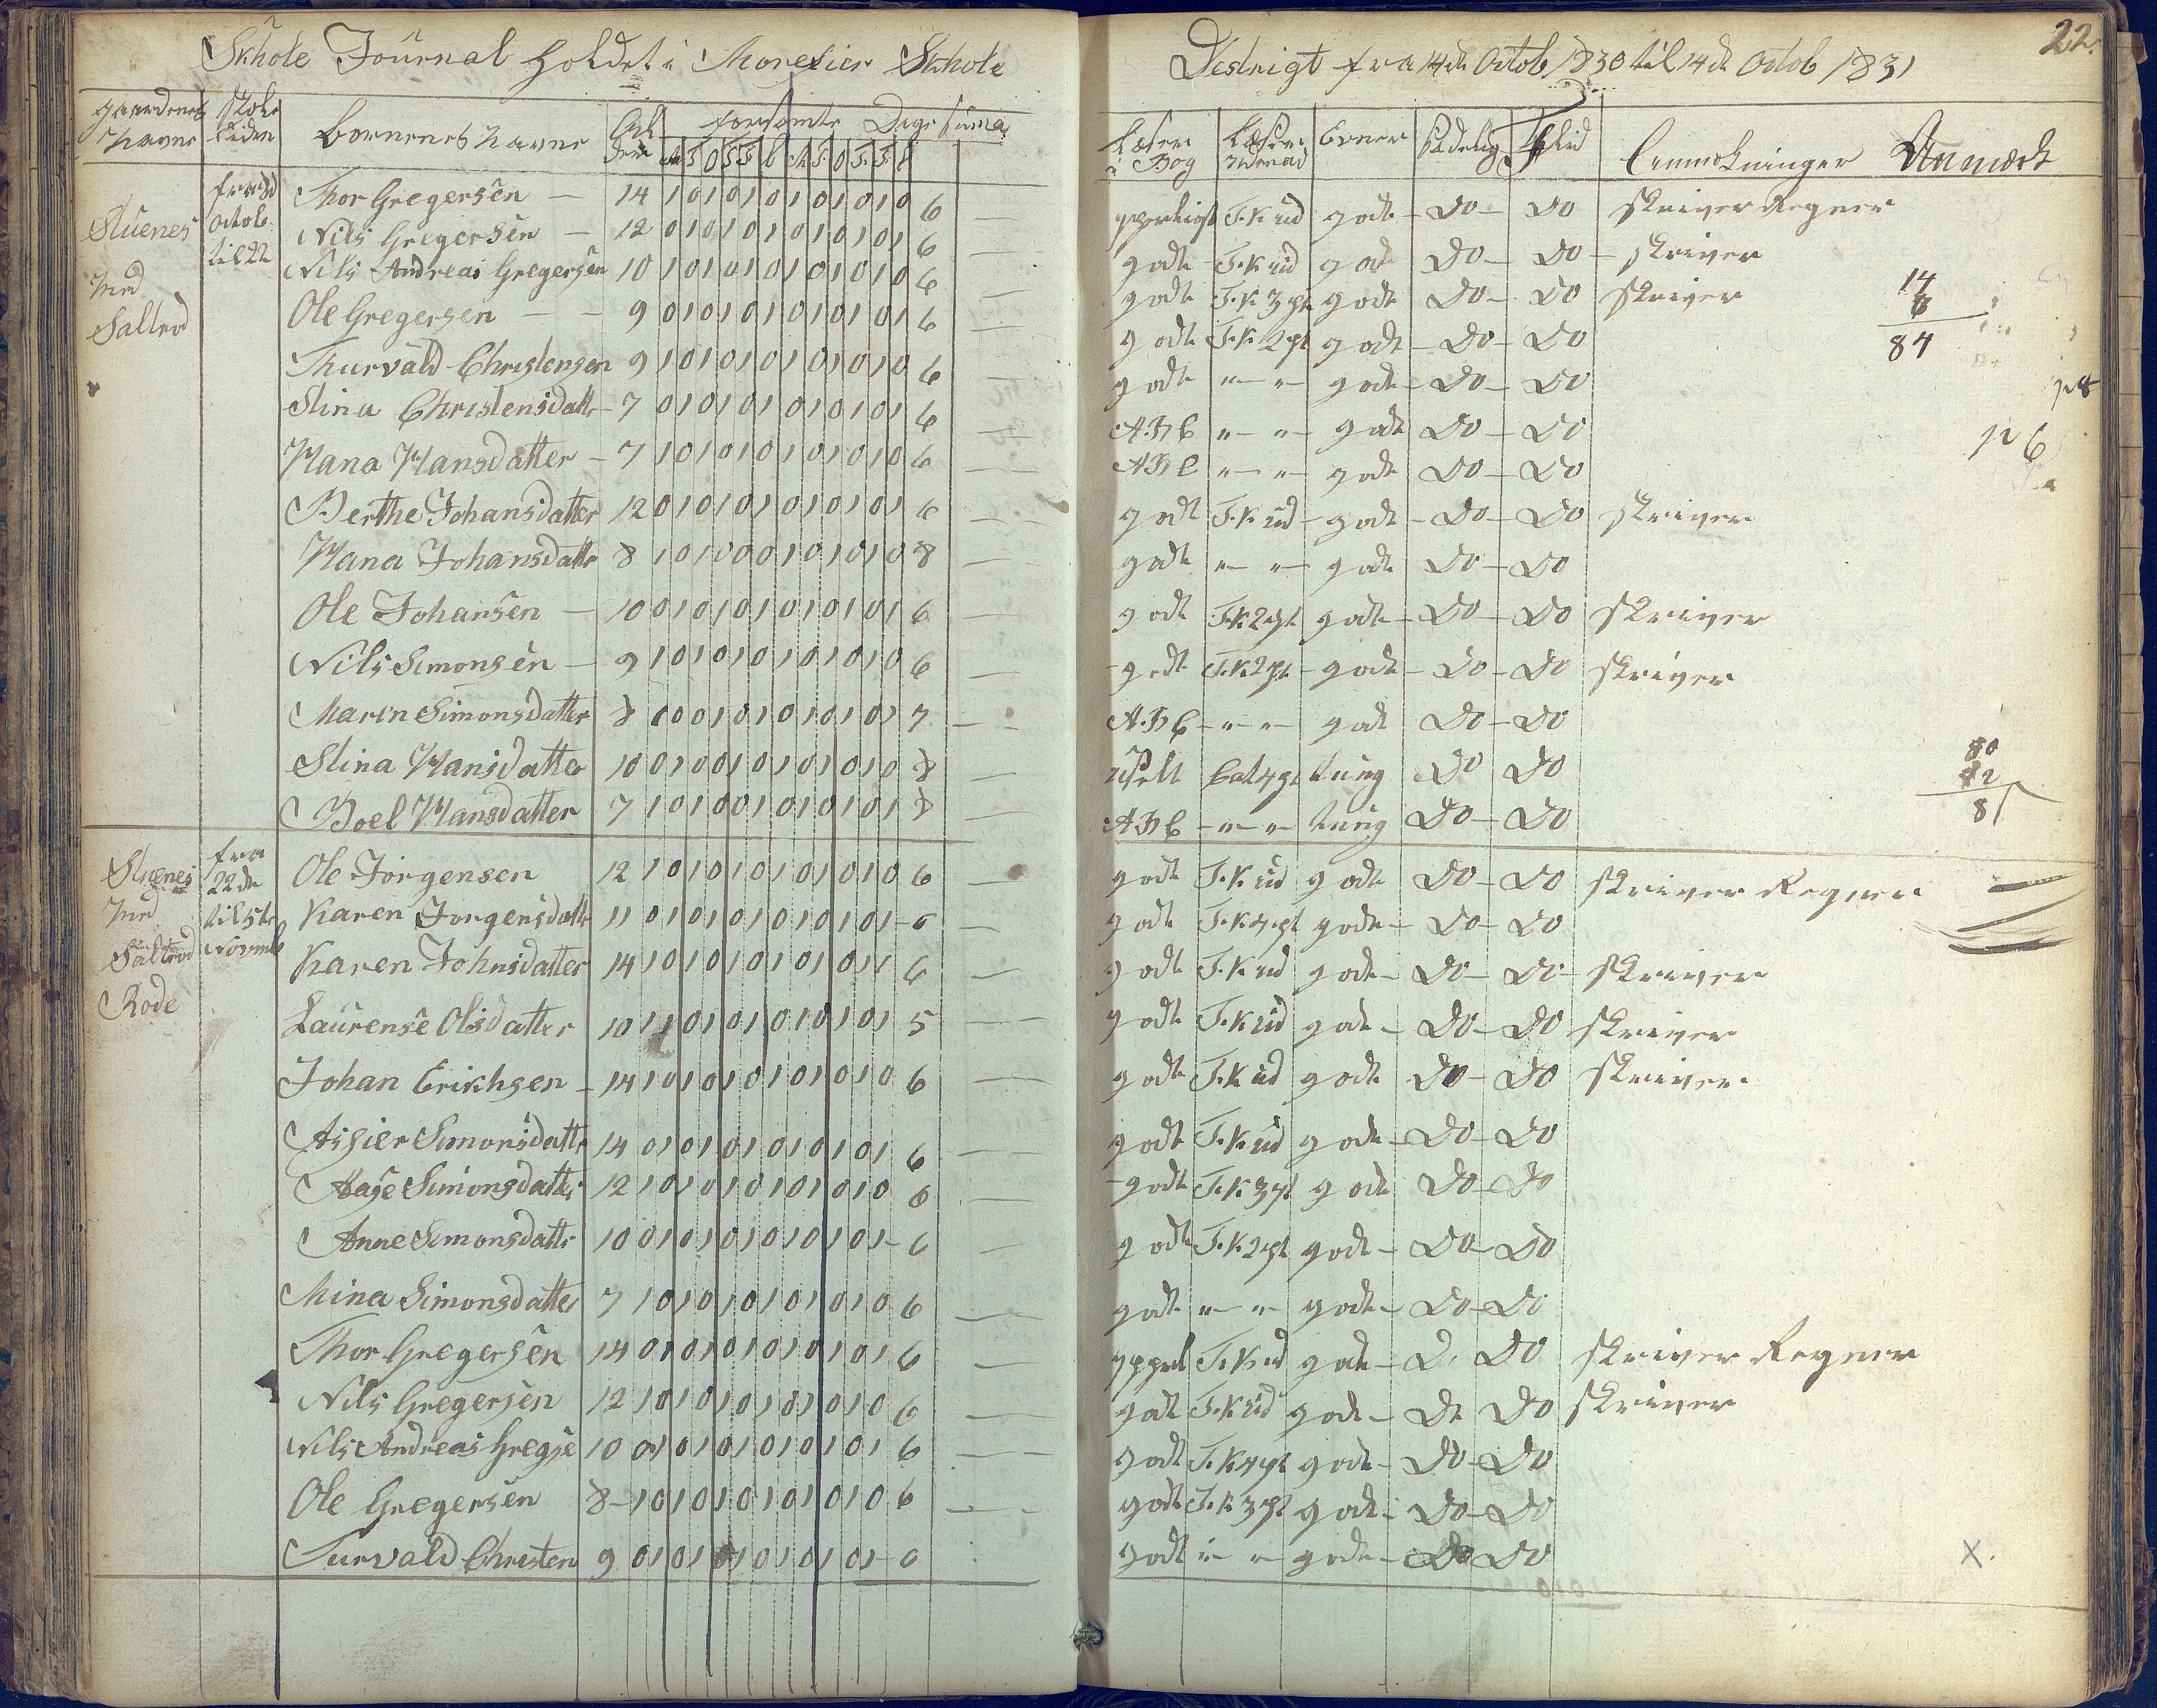 Skhole Journal holdet i Morefier Skhole
Destrigt fra 14de Octob 1830 til 14de Octob 1831
22.
gaardenes Navne
Skole tiden
börnenes navne
forsömte Dage Suma
M T O T F L M T O T F L
Læsen i Bog
Læsen udenad
Evner
Sædelig
Flid
Anmærk
Stuenes med Saltrod
fra
Octob
til 22
Thor Gregersen — 14 1 0 1 0 1 0 1 0 1 0 1 0 6 —
T.K ud godt - Do - Do skriver Regner
Nils Gregersen — 12 0 1 0 1 0 1 0 1 0 1 0 1 6 —
godt T.K ud godt Do - Do - skriver
Nils Andreas Gregersen 10 1 0 1 0 1 0 1 0 1 0 1 0 6 —
godt T.K 3 pt godt Do - Do skriver
Ole Gregersen — — 9 0 1 0 1 0 1 0 1 0 1 0 1 6 —
godt T.K 2 pt godt - Do - Do
Thurvald Christensen 9 1 0 1 0 1 0 1 0 1 0 1 0 6 —
godt " — " — godt - Do - Do
Stina Christensdatt - 7 0 1 0 1 0 1 0 1 0 1 0 1 6 —
A.B C " — " — godt Do - Do
Hana Hansdatter - 7 1 0 1 0 1 0 1 0 1 0 1 0 6 —
A B C " — " — godt Do - Do
Berthe Johansdatter 12 0 1 0 1 0 1 0 1 0 1 0 1 6 —
godt T.K ud - godt - Do - Do skriver
Hana Johansdatt 8 1 0 1 0 0 0 1 0 1 0 1 0 8 —
godt " — " — godt Do - Do
Ole Johansen — 10 0 1 0 1 0 1 0 1 0 1 0 1 6 —
godt T.K 2 pt godt - Do - Do skriver
Nils Simonsen — 9 1 0 1 0 1 0 1 0 1 0 1 0 6 —
godt T.K 2 pt - godt - Do - Do skriver
Maren Simonsdatter 8 0 0 0 1 0 1 0 1 0 1 0 1 7 —
A.B C - " — " — godt Do - Do
Stina Hansdatter 10 0 1 0 0 1 0 1 0 1 0 1 0 8 —
tung Do Do
Boel Hansdatter 7 1 0 1 0 0 1 0 1 0 1 0 1 8 —
A B C - " — " — tung Do - Do
14
6
84
80
82
Stuenes med Saltrod Rode
fra 22de til 5te Novemb
Ole Jörgensen 12 1 0 1 0 1 0 1 0 1 0 1 0 6 —
godt T.K ud godt Do - Do skriver Regner
Karen Jorgensdatt 11 0 1 0 1 0 1 0 1 0 1 0 1 - 6 —
godt T.K 4 pt godt - Do - Do
Karen Johnsdatter 14 1 0 1 0 1 0 1 0 1 0 1 1 6 —
godt T.K ud godt - Do - Do - skriver
Laurense Olsdatter 10 1 1 0 1 0 1 0 1 0 1 0 1 5 —
godt T.K ud godt - Do - Do skriver
Johan Erikhsen - 14 1 0 1 0 1 0 1 0 1 0 1 0 6 —
godt T.K ud godt Do - Do skriver
Simonsdatt 14 0 1 0 1 0 1 0 1 0 1 0 1 6 —
godt T.K ud godt - Do - Do
Aase Simonsdatter 12 1 0 1 0 1 0 1 0 1 0 1 0 6 —
- godt T.K 3 pt godt Do - Do
Anne Simonsdatt 10 0 1 0 1 0 1 0 1 0 1 0 1 - 6 —
godt T.K 2 pt godt - Do - Do
Mina Simonsdatter 7 1 0 1 0 1 0 1 0 1 0 1 0 6 —
godt " — " — godt - Do - Do
Thor Gregersen 14 0 1 0 1 0 1 0 1 0 1 0 1 6 —
T.K ud godt - Do Do skriver Regner
Nils Gregersen 12 1 0 1 0 1 0 1 0 1 0 1 0 6 —
godt T.K ud godt - Do Do skriver
Nils Andreas Gregse 10 0 1 0 1 0 1 0 1 0 1 0 1 6 —
godt T.K 4 pt godt - Do - Do
Ole Gregersen 8 - 1 0 1 0 1 0 1 0 1 0 1 0 6 —
godt T.K 3 pt godt - Do - Do
Turvald Christen 9 0 1 0 1 0 1 0 1 0 1 0 1 - 6
godt " — " — godt - Do Do
X